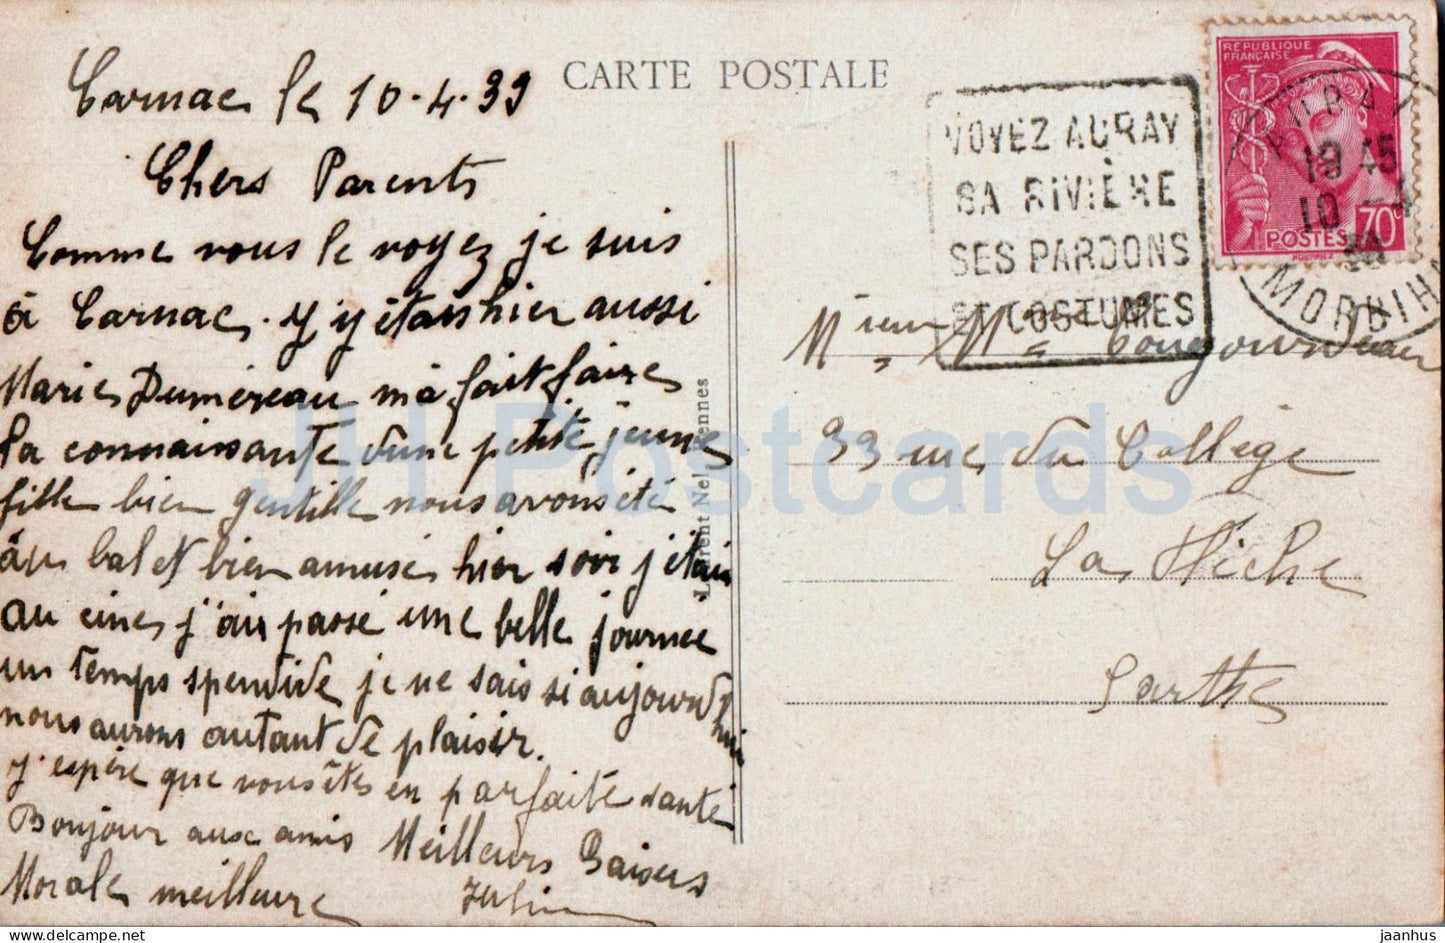 CARTE POSTALE
Carnac le 10.4.39
Chers Parents
Comme vous le voyez je suis
à Carnac. y y étais hier aussi
Marie Dumereau m'a fait faire
la connaissante d'une petite jeune
fille bien gentille nous avons été
au bal et bien amusé hier soir j'étais
au cine j'ai passé une belle journée
un temps spendide je ne sais si aujourd'hui
nous aurons autant de plaisir.
J'espère que vous êtes en parfaite santé
Bonjour aux amis Meilleurs Baisers
Morale meilleure
VOYEZ AURAY
SA RIVIÈRE
SES PARDONS
ET COSTUMES
RÉPUBLIQUE
FRANÇAISE
70c
POSTES
AURAY
19 45
10 -4
39
MORBIHAN
Mr et Mme
33 rue du Collège
La Flèche
Sarthe
Laurent Nel Rennes
JH Postcards
jaanhus @ HipPostcard.com
jaanhus @ delcampe.net
jaanhus